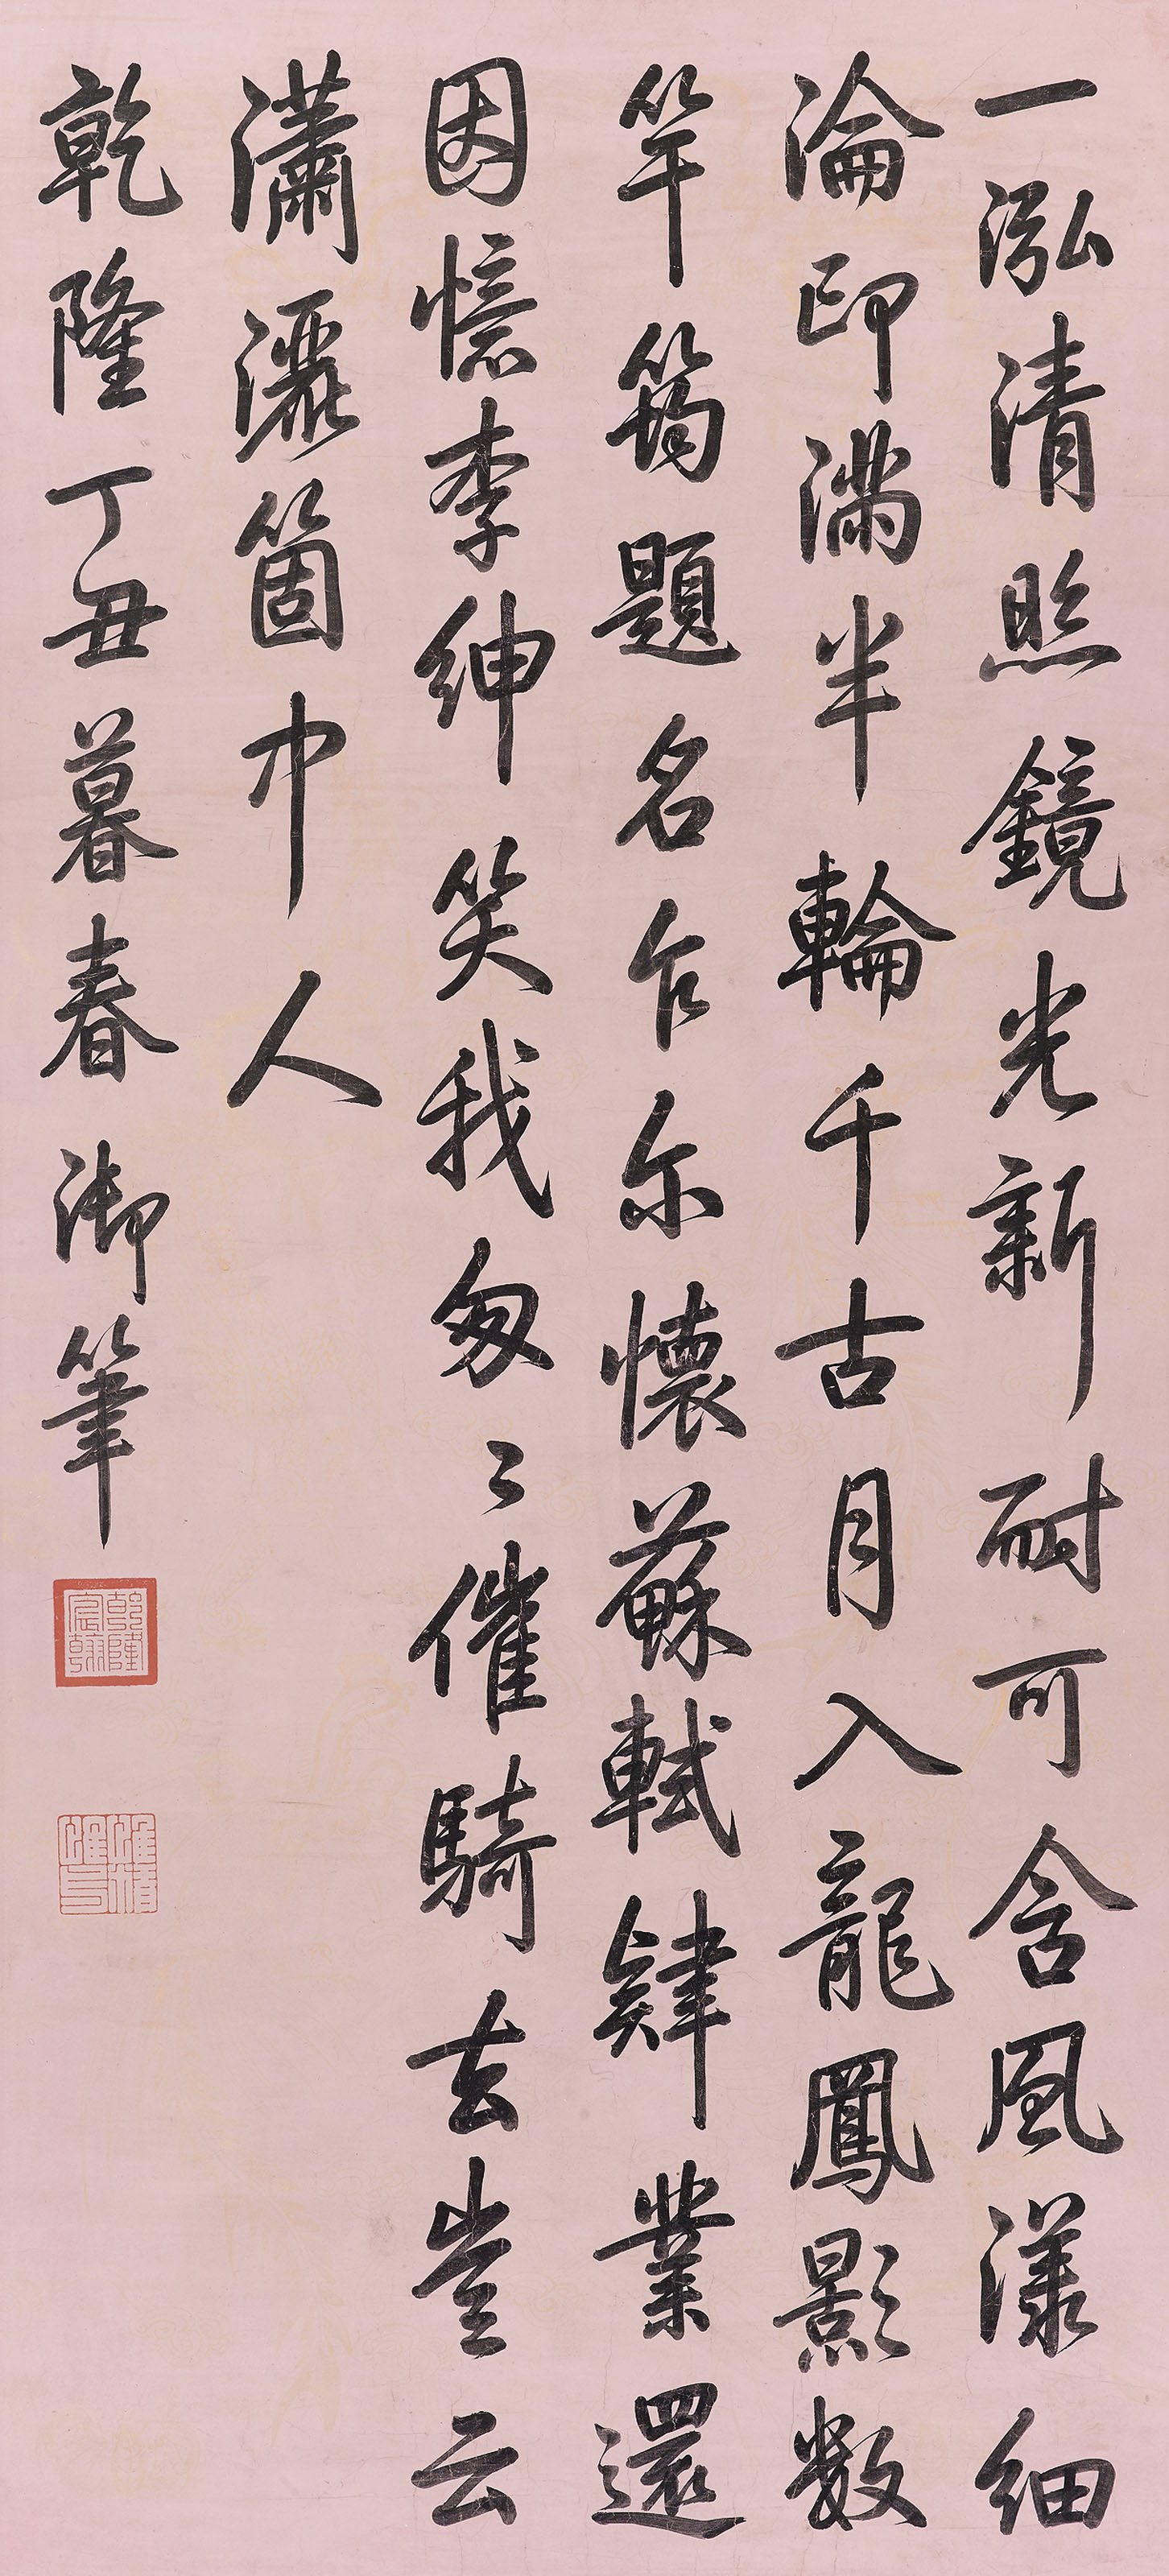 一泓清照鏡光新耐可含風漾細
淪印滿半輪千古月入龍鳳影數
竿筠題名乍尓懷蘇軾肄業還
因憶李紳笑我匆〻催騎去豈云
瀟灑箇中人
乾隆丁丑暮春御筆
乾隆宸翰
惟精惟一